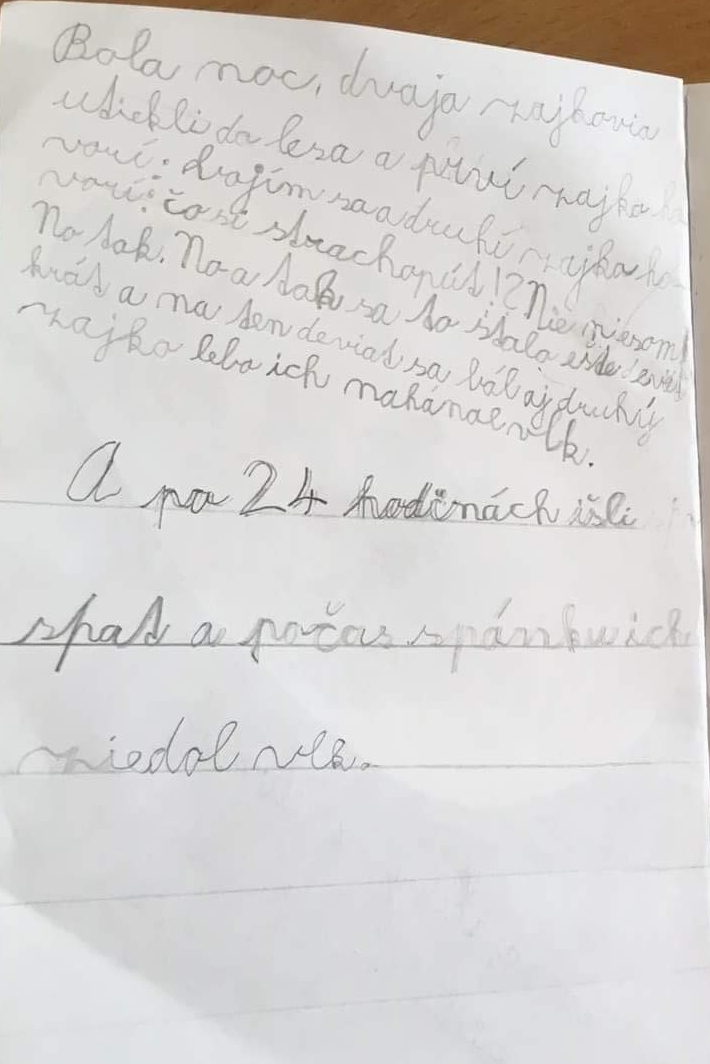 Bola noc, dvaja zajkovia
utiekli do lesa a prví zajko ho
vorí: bojím sa a druhí zajko ho-
vorí: čo si strachopút!? Nie niesom!
No tak. No a tak sa to stalo ešte deväť
krát a na ten deviat sa bál aj druhý
zajko lebo ich naháňal vlk.
A po 24 hodinách išli
spať a počas spánku ich
zjedol vlk.